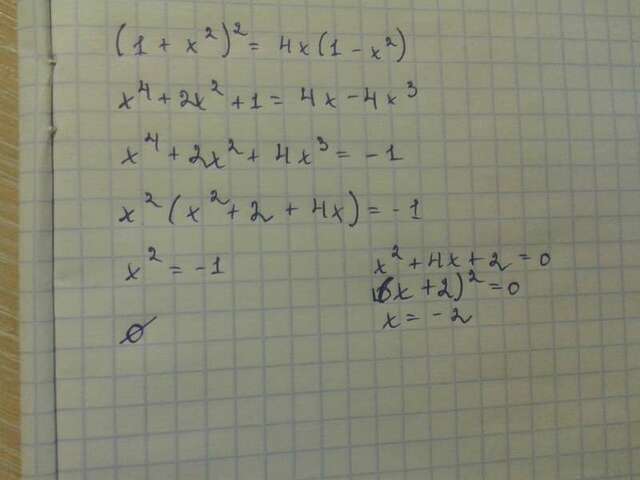 (1 + x²)² = 4x(1 - x²)
x⁴ + 2x² + 1 = 4x - 4x³
x⁴ + 2x² + 4x³ = -1
x² (x² + 2 + 4x) = -1
x² = -1
x² + 4x + 2 = 0
(x + 2)² = 0
x = -2
∅